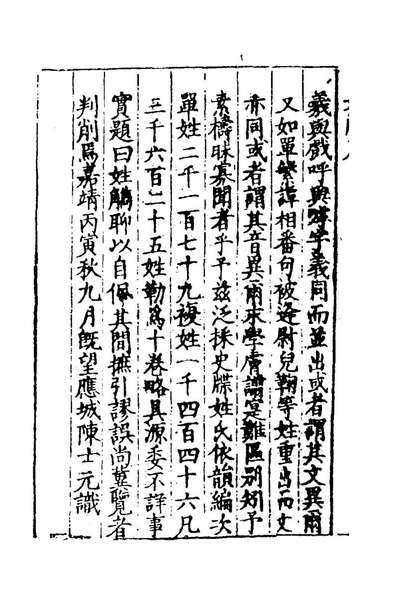 義與戲呼與虖字義同而並出或者謂其文異爾
又如單繁譚相番句被逄尉兒鞠等姓重出而文
亦同或者謂其音異爾末學膚譾寔難區別矧予
素檮昧寡聞者乎予茲泛採史牒姓氏依韻編次
單姓二千一百七十九複姓一千四百四十六凡
三千六百二十五姓勒爲十卷略具源委不詳事
實題曰姓觿聊以自佩其間摭引謬誤尚冀覽者
判削焉嘉靖丙寅秋九月既望應城陳士元識